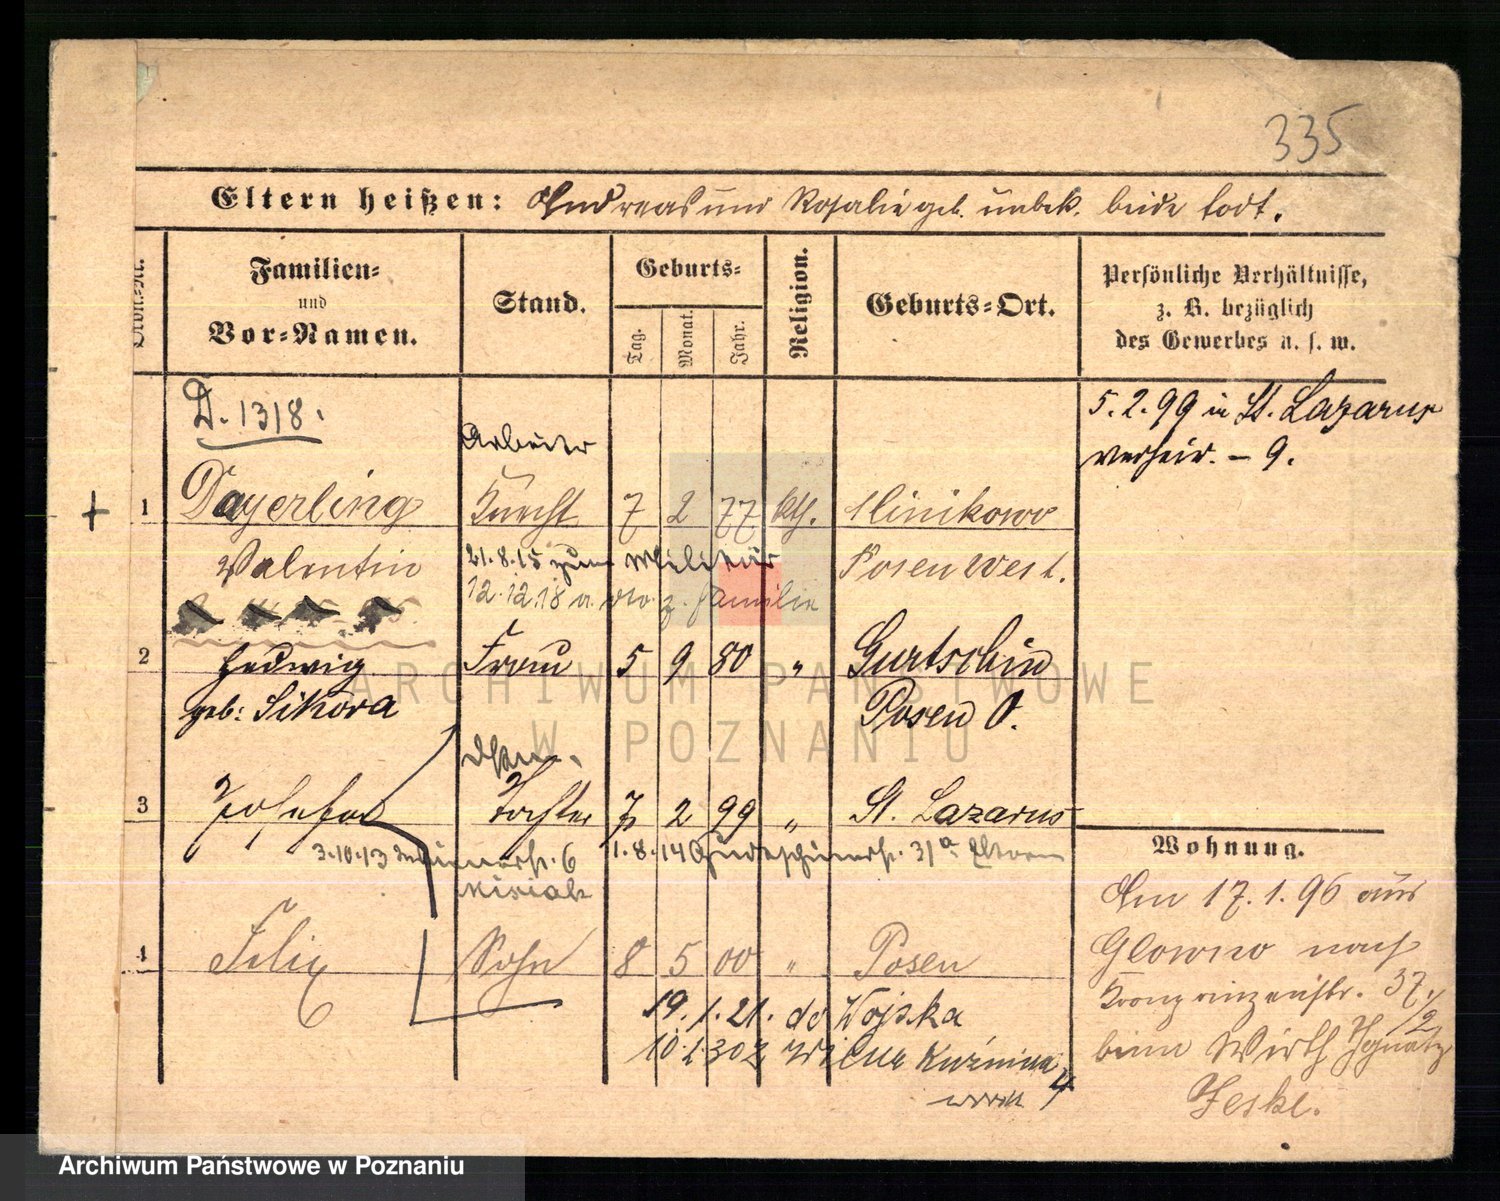 335
Eltern heißen: Andreas und Rosalie geb. unbek. beide todt.
Ordn.-Nr.
Familien-
und
Vor-Namen.
Stand.
Geburts-
Tag.
Monat.
Jahr.
Religion.
Geburts-Ort.
Persönliche Verhältnisse,
z. B. bezüglich
des Gewerbes u. s. w.
D. 1318.
5.2.99 in St. Lazarus
verheir. - 9.
Arbeiter
1 Dayerling Knecht 7 2 77 kth. Slinikowo
Valentin Posen West.
21.8.15 zum Militär
12.12.18 v. z. Familie
2 Hedwig Frau 5 9 80 " Gurtschin
geb: Sikora Posen O.
3 Josefa Tochter 7 2 99 " St. Lazarus
3.10.13 6 1.8.14 Gurtschinerstr. 31a Eltern
Wohnung.
4 Felix Sohn 8 5 00 " Posen
19.1.21. do Wojska
10.1.30 z Wilna Kuźnicza 4
Am 17.1.96 aus
Glowno nach
Kronprinzenstr. 37./2
beim Wirth Ignatz
Jeske.
ARCHIWUM PAŃSTWOWE
W POZNANIU
Archiwum Państwowe w Poznaniu